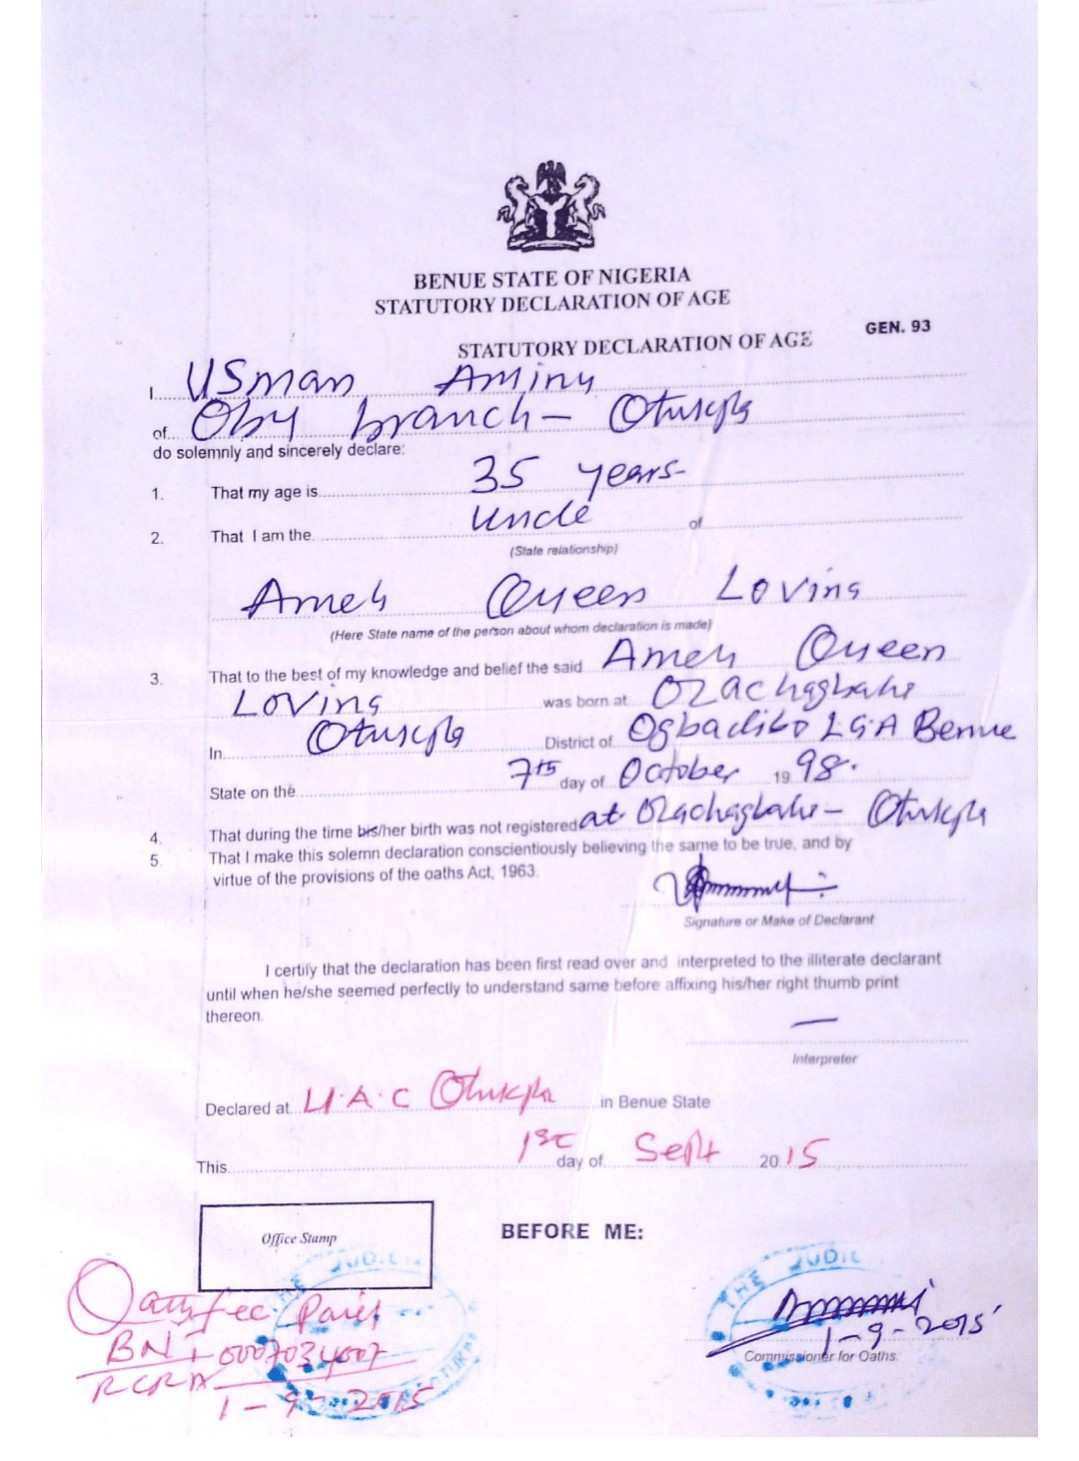 BENUE STATE OF NIGERIA
STATUTORY DECLARATION OF AGE
GEN. 93
STATUTORY DECLARATION OF AGE
I Usman Aminu
of Oby branch - Otukpa
do solemnly and sincerely declare:
1. That my age is 35 years-
2. That I am the Uncle of
(State relationship)
Ameh Queen Loving
(Here State name of the person about whom declaration is made)
3. That to the best of my knowledge and belief the said Ameh Queen
Loving was born at
In Otukpa District of Ogbadibo LGA Benue
State on the 7th day of October 1998.
4. That during the time his/her birth was not registered at - Otukpa
5. That I make this solemn declaration conscientiously believing the same to be true, and by
virtue of the provisions of the oaths Act, 1963.
Signature or Make of Declarant
I certify that the declaration has been first read over and interpreted to the illiterate declarant
until when he/she seemed perfectly to understand same before affixing his/her right thumb print
thereon.
Interpreter
Declared at U.A.C Otukpa in Benue State
This 1st day of Sept 2015
Office Stamp
BEFORE ME:
THE JUDIC
THE JUDIC
Oath fee Paid
1-9-2015
1-9-2015
Commissioner for Oaths.